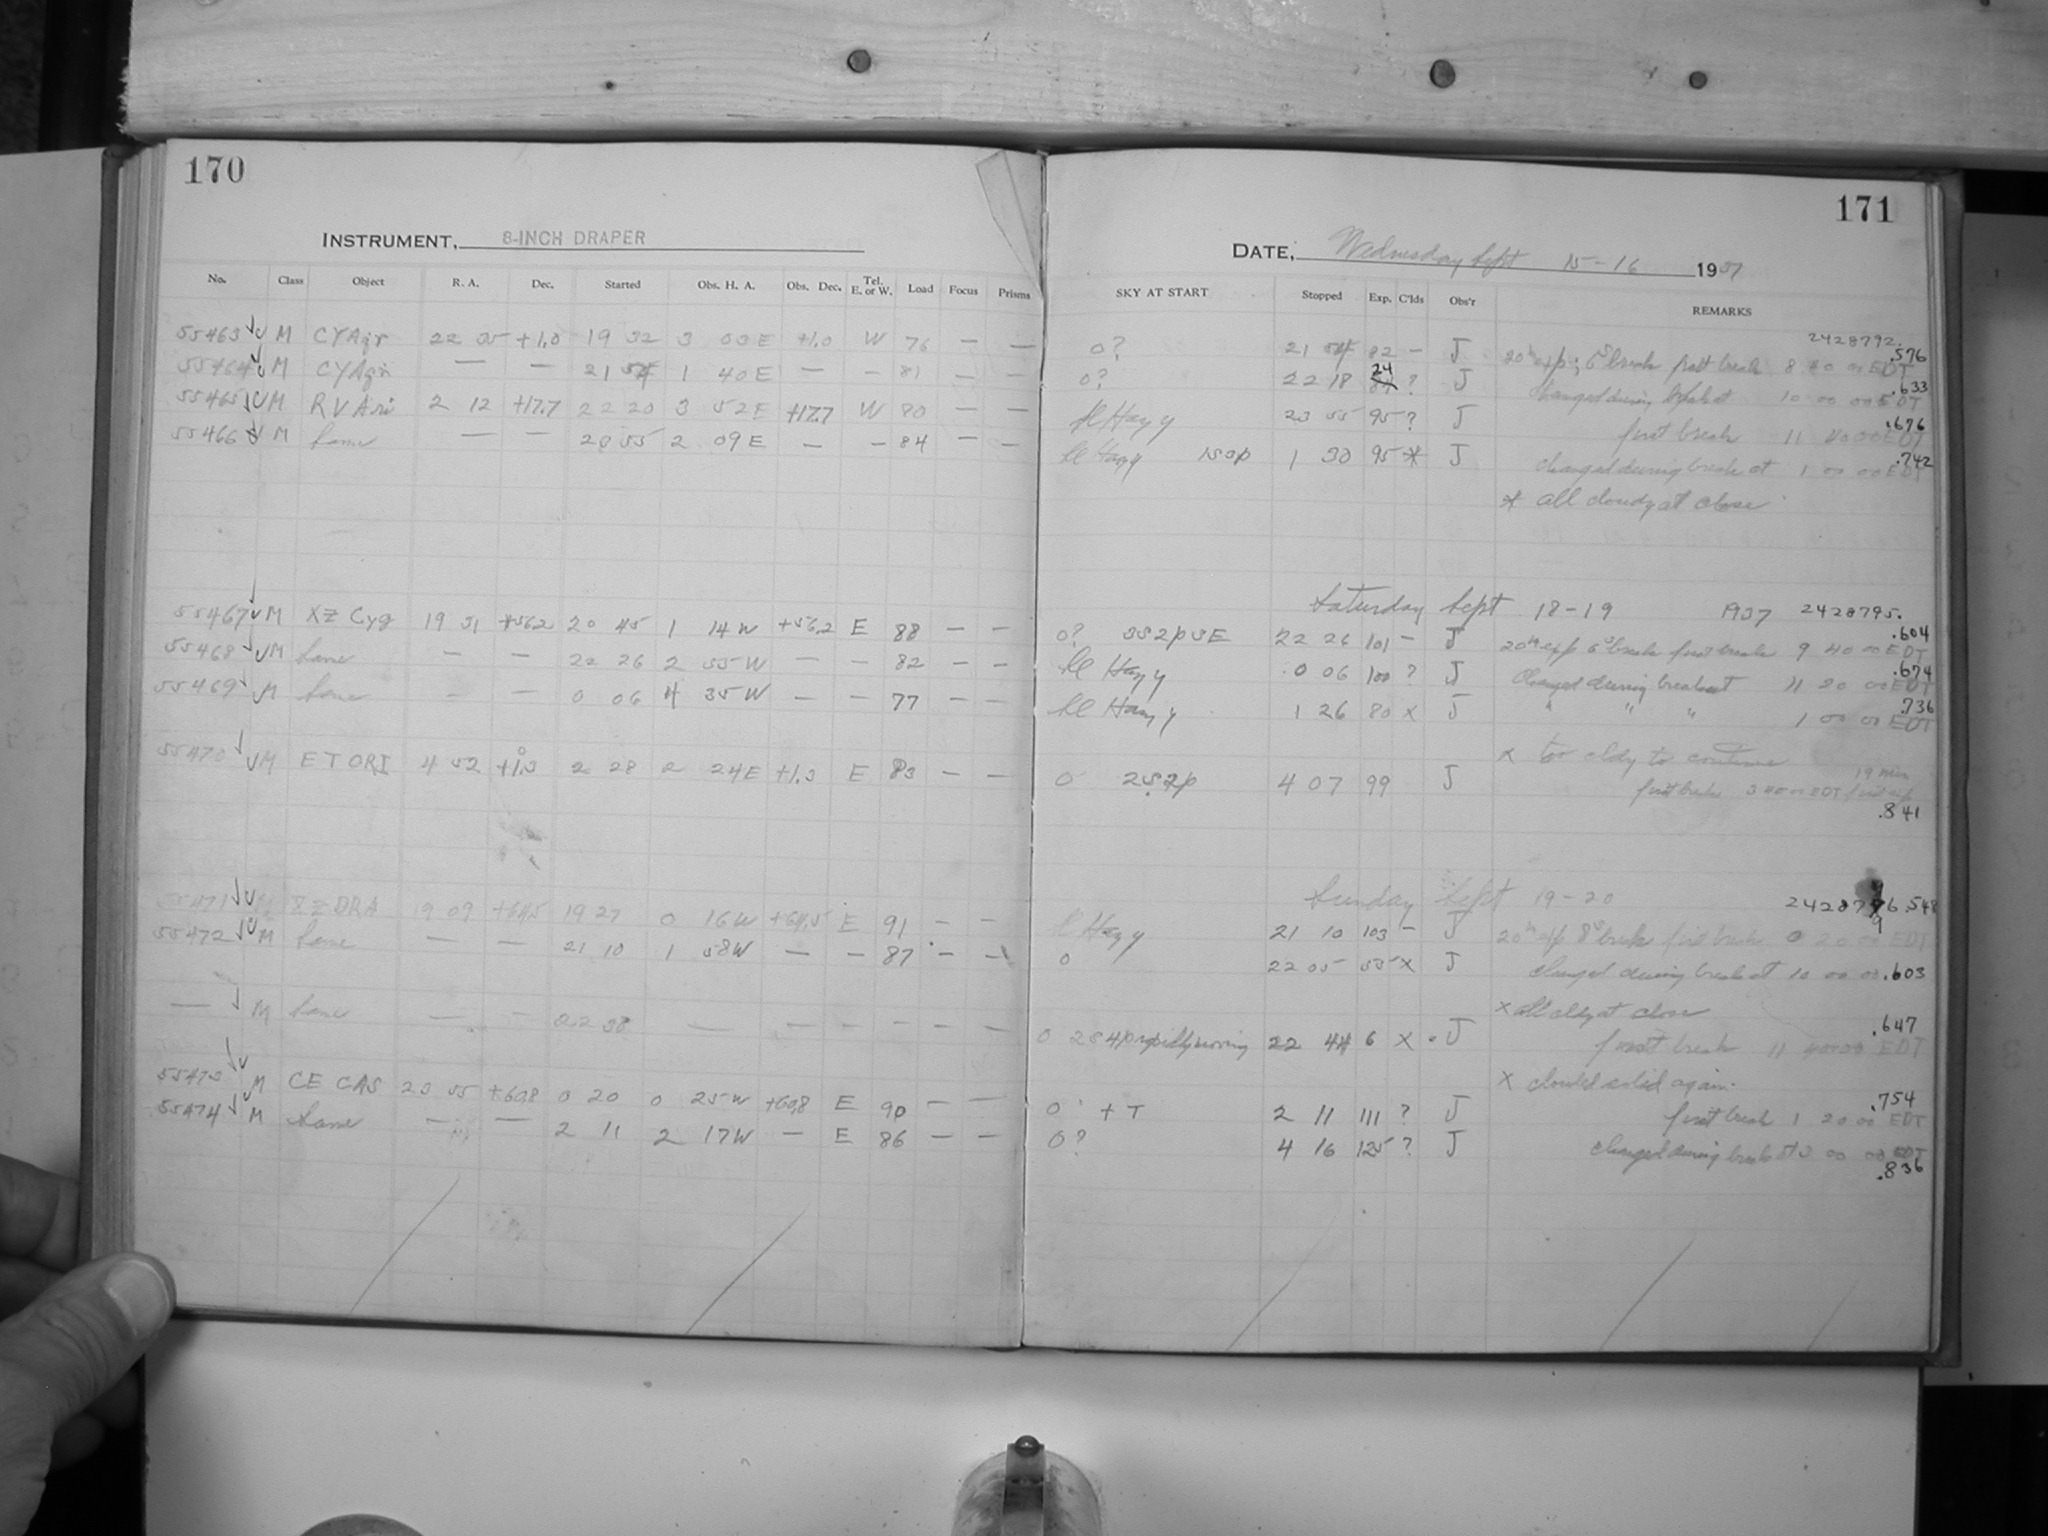 170
INSTRUMENT, 8-INCH DRAPER
No. Class Object R. A. Dec. Started Obs. H. A. Obs. Dec. Tel. E. or W. Load Focus Prisms
55463 M CYAqr 22 35 +1.0 19 32 3 03E +1.0 W 76 — —
55464 M CYAqr — — 21 54 1 40E — — 81 — —
55465 M RVAri 2 12 +17.7 22 20 3 52E +17.7 W 80 — —
55466 M Same — — 23 55 2 09E — — 84 — —
55467 M XZ Cyg 19 31 +56.2 20 45 1 14W +56.2 E 88 — —
55468 M Same — — 22 26 2 55W — — 82 — —
55469 M Same — — 0 06 4 35W — — 77 — —
55470 M ET ORI 4 52 +1.3 2 28 2 24E +1.3 E 83 — —
55471 M XZ DRA 19 09 +64.5 19 27 0 16W +64.5 E 91 — —
55472 M Same — — 21 10 1 58W — — 87 — —
— M Same — — 22 38 — — — — — —
55473 M CE CAS 23 55 +60.8 0 20 0 25W +60.8 E 90 — —
55474 M Same — — 2 11 2 17W — E 86 — —
171
DATE, Wednesday Sept 15-16 1937
SKY AT START Stopped Exp. C'lds Obs'r REMARKS
2428792.
0? 21 54 82 — J 20m exp; 6s break first break 8 40 00 EDT .576
0? 22 18 24 ? J changed during break at 10 00 00 EDT .633
Hazy 23 55 95 ? J first break 11 40 00 EDT .676
Hazy 1s2p 1 30 95 * J changed during break at 1 00 00 EDT .742
* all cloudy at close
Saturday Sept 18-19 1937 2428795.
0? 3s2p3E 22 26 101 — J 20m exp 6s break first break 9 40 00 EDT .604
Hazy 0 06 100 ? J Changed during break at 11 20 00 EDT .674
Hazy 1 26 80 x J " " " 1 00 00 EDT .736
x too cldy to continue
0 2s2p 4 07 99 J first break 3 40 00 EDT first exp 19 min
.841
Sunday Sept 19-20 2428796.548
Hazy 21 10 103 — J 20m exp 8s break first break 8 20 00 EDT
0 22 05 55 x J changed during break at 10 00 00 .603
x all cldy at close
0 2s4p rapidly moving 22 44 6 x J first break 11 40 00 EDT .647
x clouded solid again.
0 + T 2 11 111 ? J first break 1 20 00 EDT .754
0? 4 16 125 ? J changed during break at 3 00 00 EDT
.836